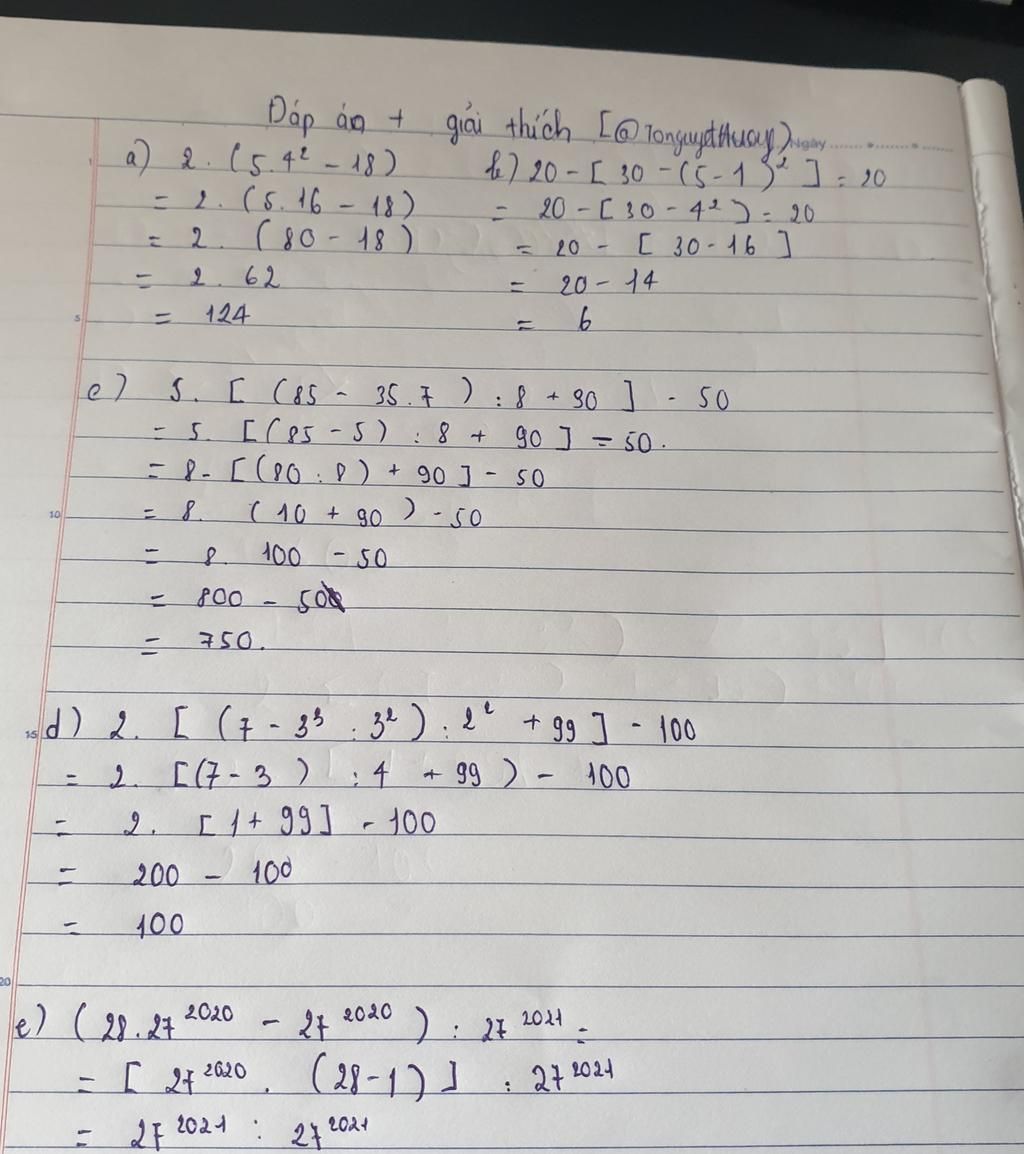 Đáp án + giải thích [@Tonguyethuay) Ngày
a) 2. (5.4² - 18)
= 2. (5.16 - 18)
= 2. (80 - 18)
= 2. 62
= 124
b) 20 - [30 - (5-1)²] = 20
= 20 - [30 - 4²) = 20
= 20 - [30-16]
= 20 - 14
= 6
c) 5. [(85 - 35.7) : 8 + 90] - 50
= 5. [(85 - 5) : 8 + 90] = 50.
= 8. [(80 : 8) + 90] - 50
= 8. (10 + 90) - 50
= 8. 100 - 50
= 800 - 50
= 750.
d) 2. [(7 - 3³ : 3²) : 2² + 99] - 100
= 2. [(7 - 3) : 4 + 99) - 100
= 2. [1 + 99] - 100
= 200 - 100
= 100
e) (28.27²⁰²⁰ - 27²⁰²⁰) : 27²⁰²¹ =
= [27²⁰²⁰ . (28-1)] : 27²⁰²¹
= 27²⁰²¹ : 27²⁰²¹
5
10
15
20